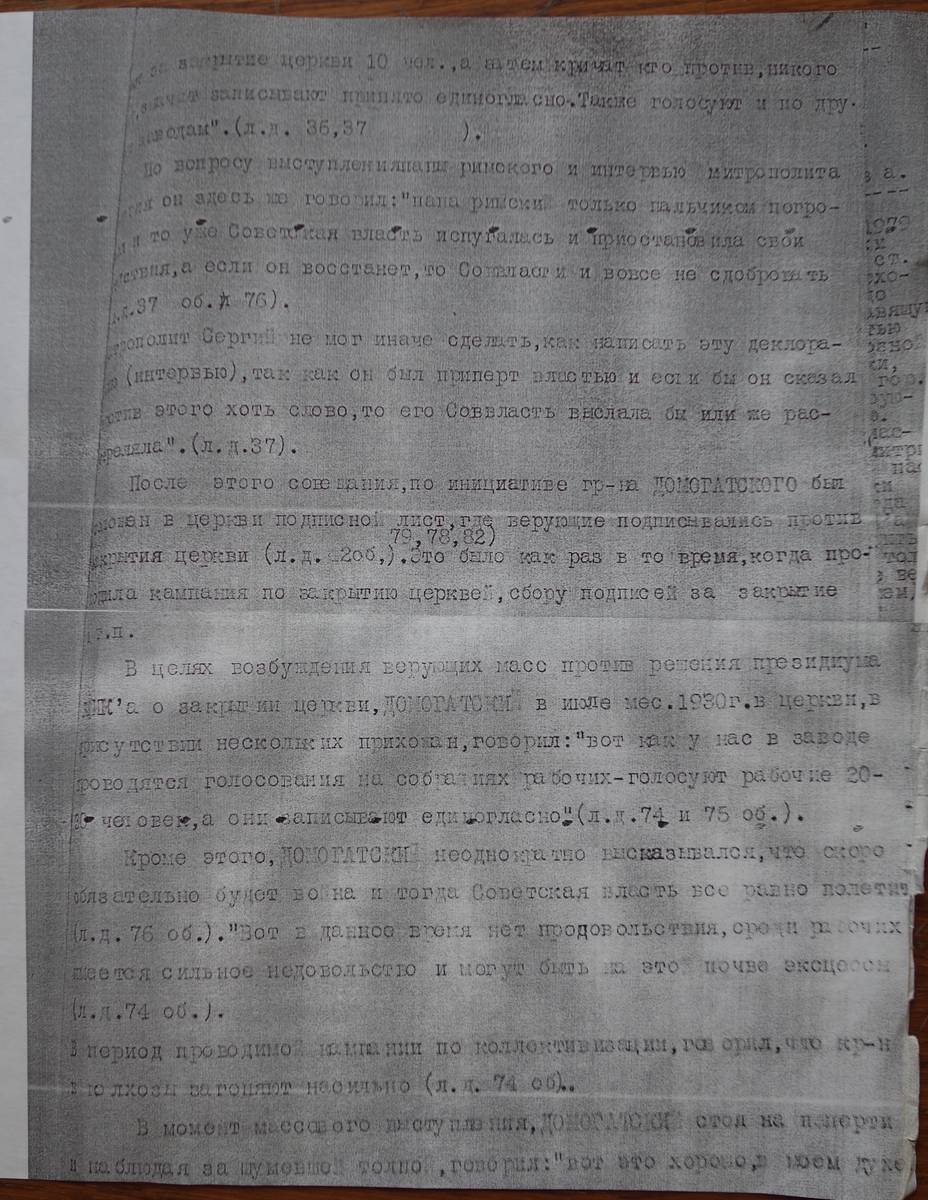 за закрытие церкви 10 чел.,а затем кричат кто против,никого
значит записывают принято единогласно.Также голосуют и по дру-
заводам".(л.д. 36,37 ).
По вопросу выступления папы римского и интервью митрополита
он здесь же говорил:"папа римский только пальчиком погро-
и то уже Советская власть испугалась и приостановила свои
ствия,а если он восстанет,то Соввласти и вовсе не сдобровать
л.д.37 об. 76).
трополит Сергий не мог иначе сделать,как написать эту деклора-
(интервью),так как он был приперт властью и если бы он сказал
отив этого хоть слово,то его Соввласть выслала бы или же рас-
треляла".(л.д.37).
После этого совещания,по инициативе гр-на ДОМОГАТСКОГО был
в церкви подписной лист,где верующие подписывались против
79,78,82)
акрытия церкви (л.д. 2об,).Это было как раз в то время,когда про-
одила кампания по закрытию церквей,сбору подписей за закрытие
т.п.
В целях возбуждения верующих масс против решения президиума
ЦИК'а о закрытии церкви,ДОМОГАТСКИЙ в июле мес.1930г.в церкви,в
рисутствии нескольких прихожан,говорил:"вот как у нас в заводе
роводятся голосования на собраниях рабочих-голосуют рабочие 20-
человек,а они записывают единогласно"(л.д.74 и 75 об.).
Кроме этого,ДОМОГАТСКИЙ неоднократно высказывался,что скоро
обязательно будет война и тогда Советская власть все равно полетит
(л.д. 76 об.)."Вот в данное время нет продовольствия,среди рабочих
имеется сильное недовольство и могут быть на этой почве эксцессы
(л.д.74 об.).
В период проводимой кампании по коллективизации,говорил,что кр-н
в колхозы загоняют насильно (л.д. 74 об)..
В момент массового выступления,ДОМОГАТСКИЙ стоя на паперти
и наблюдая за шумевшей толпой,говорил:"вот это хорошо,в моем духе